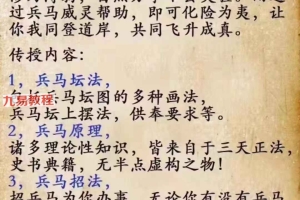 过兵马威灵帮助，即可化险为夷，让
你我同登道岸，共同飞升成真。
传授内容：
1，兵马坛法，
九易教程
兵马坛图的多种画法，
兵马坛上摆法，供奉要求等。
2，兵马原理，
诸多理论性知识，皆来自于三天正法，
史书典籍，无半点虚构之物！
3，兵马招法，
招兵马为你办事，无论你有没有兵马